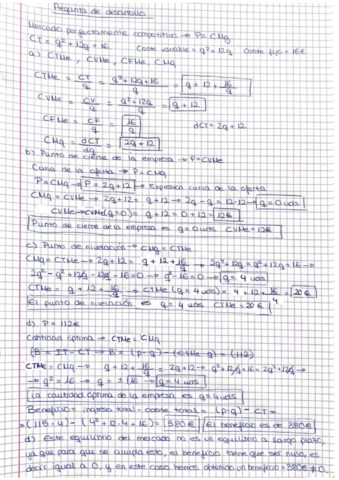 Pregunta de desarrollo
Mercado perfectamente competitivo → P = CMg
CT = q² + 12q + 16 Coste variable = q² + 12q Coste fijo = 16€
a) CTMe, CVMe, CFMe, CMg
CTMe = CT/q = q² + 12q + 16/q = q + 12 + 16/q
CVMe = CV/q = q² + 12q/q = q + 12
CFMe = CF/q = 16/q dCT = 2q + 12
CMg = dCT/dq = 2q + 12
b) Punto de cierre de la empresa → P = CVMe
Curva de la oferta → P = CMg
P = CMg → P = 2q + 12 → Expresión curva de la oferta
CMg = CVMe → 2q + 12 = q + 12 → 2q - q = 12 - 12 → q = 0 uds
CVMe → CVMe (q = 0) = q + 12 = 0 + 12 = 12€
Punto de cierre de la empresa es q = 0 uds CVMe = 12€
c) Punto de nivelación → CMg = CTMe
CMg = CTMe → 2q + 12 = q + 12 + 16/q → 2q² + 12q = q² + 12q + 16 →
2q² - q² + 12q - 12q - 16 = 0 → q² - 16 = 0 → q = 4 uds
CTMe = q + 12 + 16/q → CTMe (q = 4 uds) = 4 + 12 + 16/4 = 20€
El punto de nivelación es q = 4 uds CTMe = 20€
d) P = 112€
Cantidad óptima → CTMe = CMg
(B = IT - CT → B = (p · q) - (CVMe · q) = (112)
CTMe = CMg → q + 12 + 16/q = 2q + 12 → q² + 12q + 16 = 2q² + 12q →
→ q² = 16 → q = ± √16 → q = 4 uds
La cantidad óptima de la empresa es q = 4 uds
Beneficio = ingreso total - coste total = (p · q) - CT =
= (115 · 4) - (4² + 12 · 4 + 16) = 380€ El beneficio es de 380€
d) Este equilibrio del mercado no es un equilibrio a largo plazo,
ya que para que se cumpla esto, el beneficio tiene que ser nulo, es
decir igual a 0, y en este caso hemos obtenido un beneficio = 380€ ≠ 0.